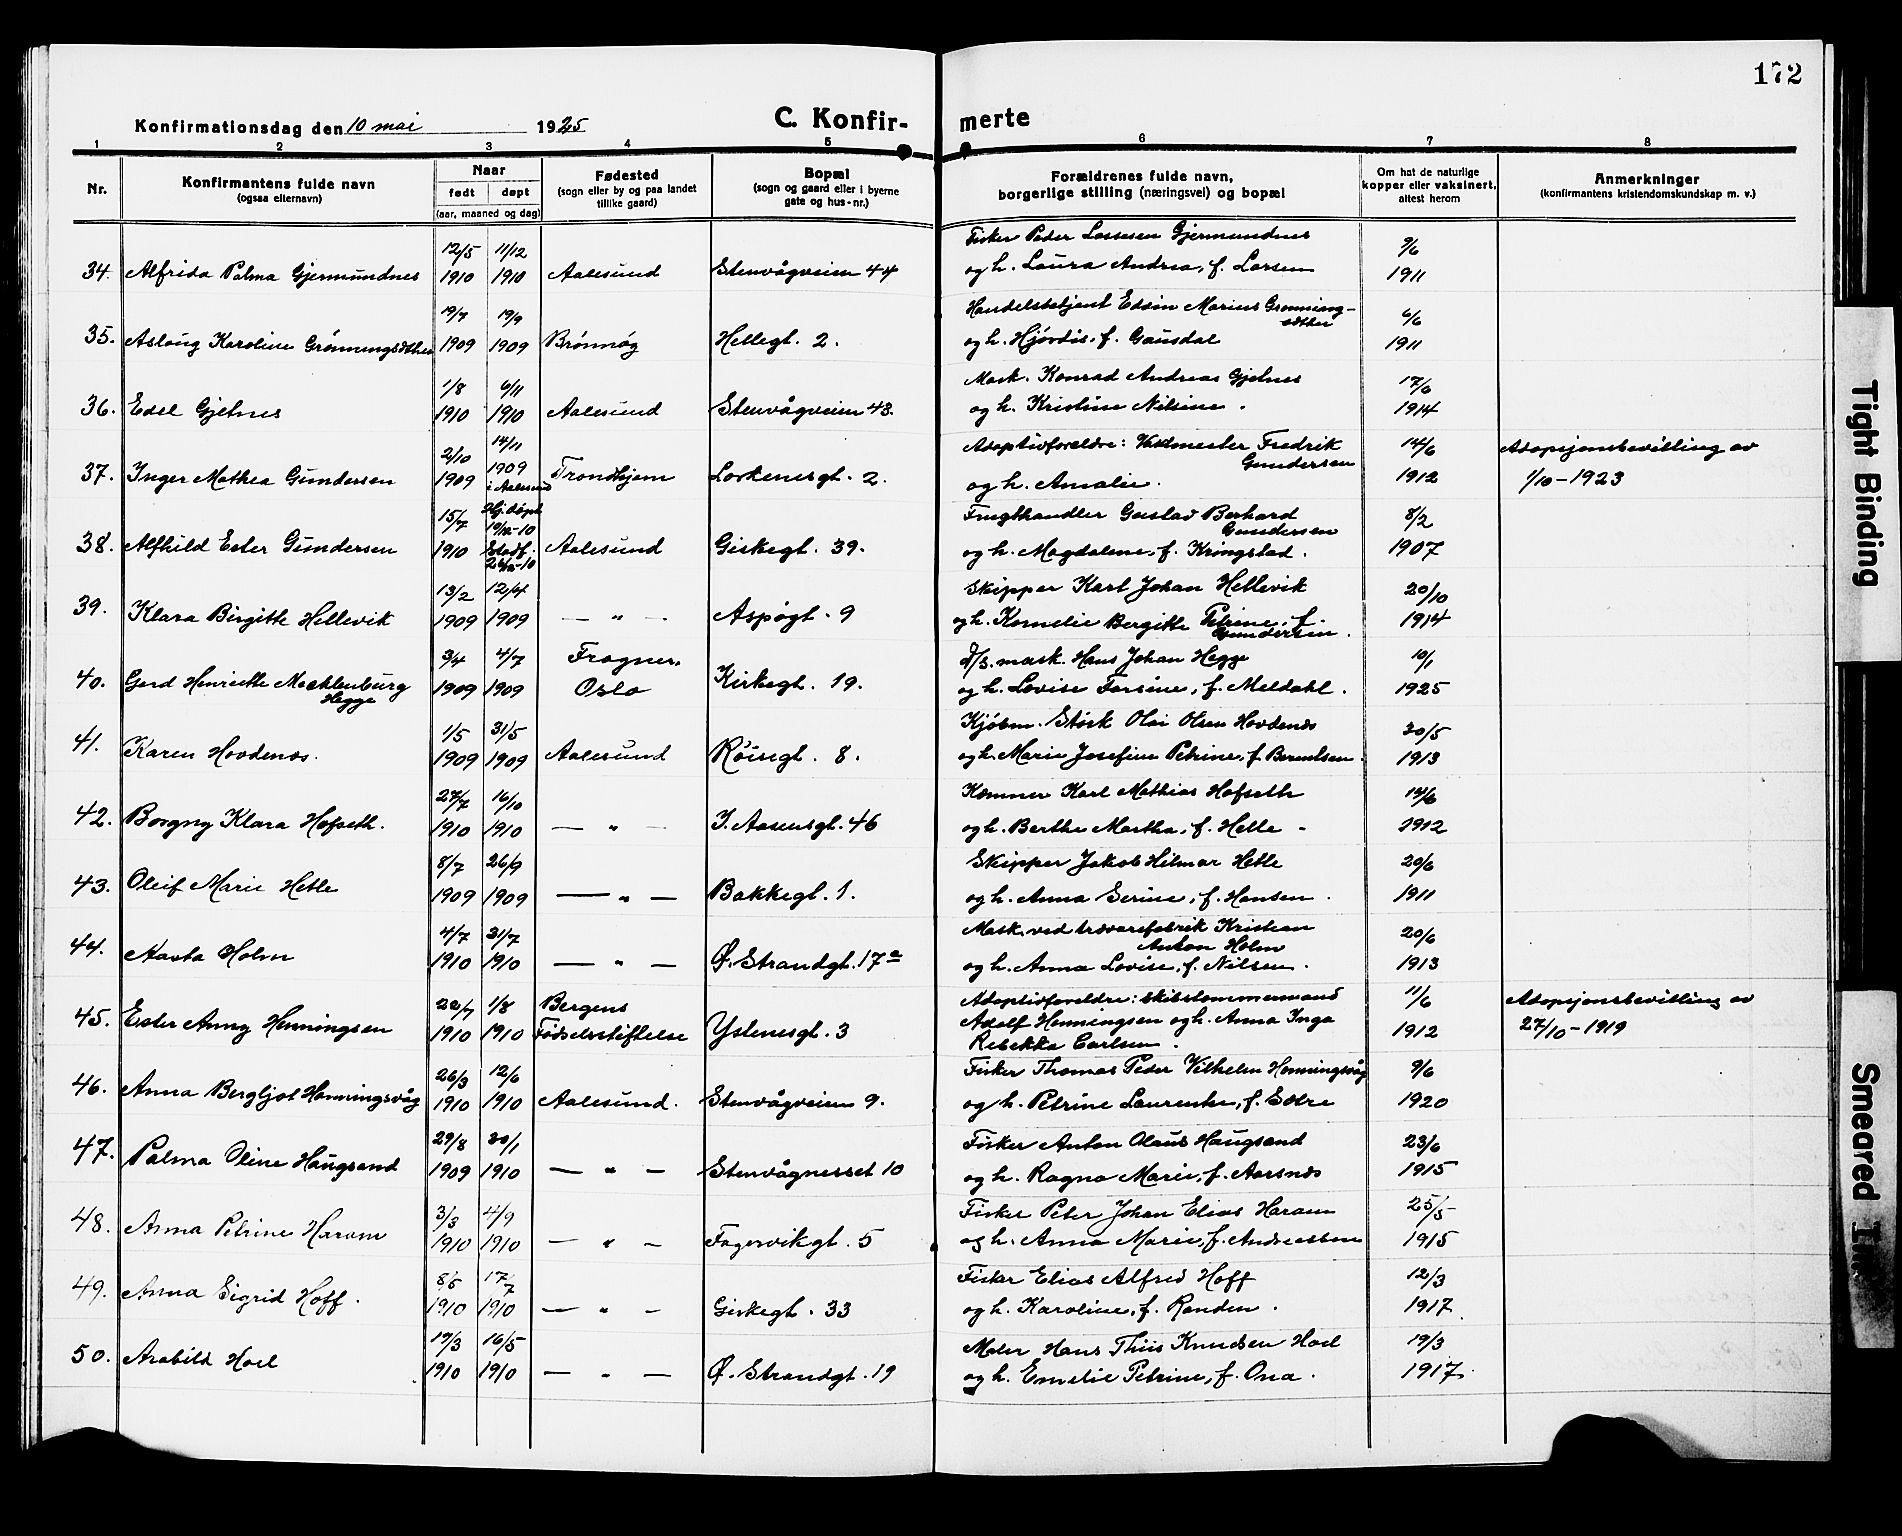 172
Konfirmationsdag den 10 mai 1925 C. Konfirmerte
1 2 3 4 5 6 7 8
Nr. Konfirmantens fulde navn (ogsaa efternavn) Naar født døpt (aar, maaned og dag) Fødested (sogn eller by og paa landet tillike gaard) Bopæl (sogn og gaard eller i byerne gate og hus-nr.) Forældrenes fulde navn, borgerlige stilling (næringsvei) og bopæl Om hat de naturlige kopper eller vaksinert, attest herom Anmerkninger (konfirmantens kristendomskundskap m. v.)
12/5 11/12 Fisker Peder Gjermundnes 9/6
34. Alfrida Palma Gjermundnes 1910 1910 Aalesund Stenvågveien 44 og h. Laura Andrea, f. Larsen 1911
19/7 19/9 Handelsbetjent Edvin Marius Grønningsæther 6/6
35. Aslaug Karoline Grønningsæther 1909 1909 Brønnøy Hellegt. 2. og h. Hjørdis, f. Gausdal 1911
1/8 6/11 Mask. Konrad Andreas Gjelnes 17/6
36. Edel Gjelnes 1910 1910 Aalesund Stenvågveien 43. og h. Kristine Nilsine. 1914
2/10 14/11 Adoptivforeldre: Vaktmester Fredrik Gundersen 14/6 Adopsjonsbevilling av
37. Inger Mathea Gundersen 1909 1909 i Aalesund Trondhjem Lorkenesgt. 2. og h. Amalie. 1912 1/10-1923
15/7 Hj.døpt 10/12-10 Frugthandler Gustav Berhard Gundersen 8/2
38. Alfhild Ester Gundersen 1910 Stadf. 26/12-10 Aalesund Giskegt. 39. og h. Magdalene, f. Kringstad. 1907
13/2 12/4 Skipper Karl Johan Hellevik 20/10
39. Klara Birgitte Hellevik 1909 1909 — " — Aspøgt. 9 og h. Kornelie Bergitte Petrine, f. Gundersen. 1914
3/4 4/7 Frogner, d/s. mask. Hans Johan Hegge 10/1
40. Gerd Henriette Mecklenburg Hegge 1909 1909 Oslo Kirkegt. 19. og h. Lovise Torsine, f. Meldahl. 1925
1/5 31/5 Kjøbm. Stürk Olai Olsen Hovdenes 30/5
41. Karen Hovdenes. 1909 1909 Aalesund Røisegt. 8. og h. Marie Josefine Petrine, f. Berentsen. 1913
27/7 16/10 Kæmner Karl Mathias Hofseth 14/6
42. Borgny Klara Hofseth. 1910 1910 — " — I. Aasensgt. 46 og h. Berthe Martha, f. Helle - 1912
8/7 26/9 Skipper Jakob Hilmar Hetle 20/6
43. Oleif Marie Hetle 1909 1909 — " — Bakkegt. 1. og h. Anna Serine, f. Hansen. 1911
4/7 31/7 Mask. ved trævarefabrik Kristian Anton Holm 20/6
44. Aasta Holm 1910 1910 — " — Ø. Strandgt. 17a og h. Anna Lovise, f. Nilsen. 1913
22/7 1/8 Bergens Adoptivforeldre: Skibstømmermand 11/6 Adopsjonsbevilling av
45. Ester Anny Henningsen 1910 1910 Fødselsstiftelse Ystenesgt. 3 Adolf Henningsen og h. Anna Inga Rebekka Carlsen. 1912 27/10-1919
26/3 12/6 Fisker Thomas Peder Vilhelm Henningsvåg 9/6
46. Anna Bergljot Henningsvåg 1910 1910 Aalesund. Stenvågveien 9. og h. Petrine Laurentse, f. Sætre 1920
29/8 30/1 Fisker Anton Olaus Haugsand 23/6
47. Palma Oline Haugsand 1909 1910 — " — Stenvågnesset 10 og h. Ragna Marie, f. Aarsnes 1915
3/3 4/9 Fisker Peter Johan Elias Haram 25/5
48. Anna Petrine Haram 1910 1910 — " — Fagervikgt. 5 og h. Anna Marie, f. Andreassen 1915
8/5 17/7 Fisker Elias Alfred Hoff 12/3
49. Anna Sigrid Hoff. 1910 1910 — " — Giskegt. 33 og h. Karoline, f. Randen. 1917
19/3 16/5 Maler Hans Thiis Knudsen Hoel 19/3
50. Arabild Hoel 1910 1910 — " — Ø. Strandgt. 19 og h. Emelie Petrine, f. Ona. 1917.
Tight Binding
Smeared Ink